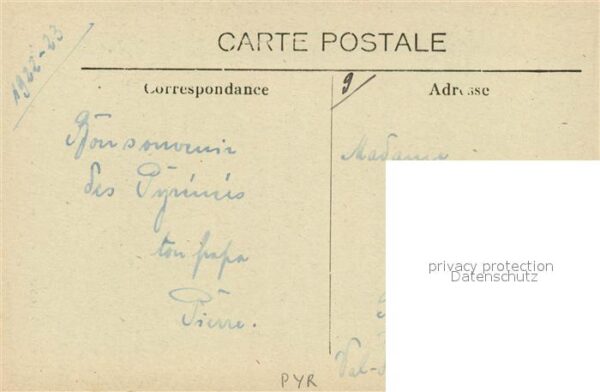 1922-23
CARTE POSTALE
Correspondance
9
Adresse
Bon souvenir
des Pyrénées
ton papa
Pierre.
Madame
privacy protection
Datenschutz
Val-
PYR